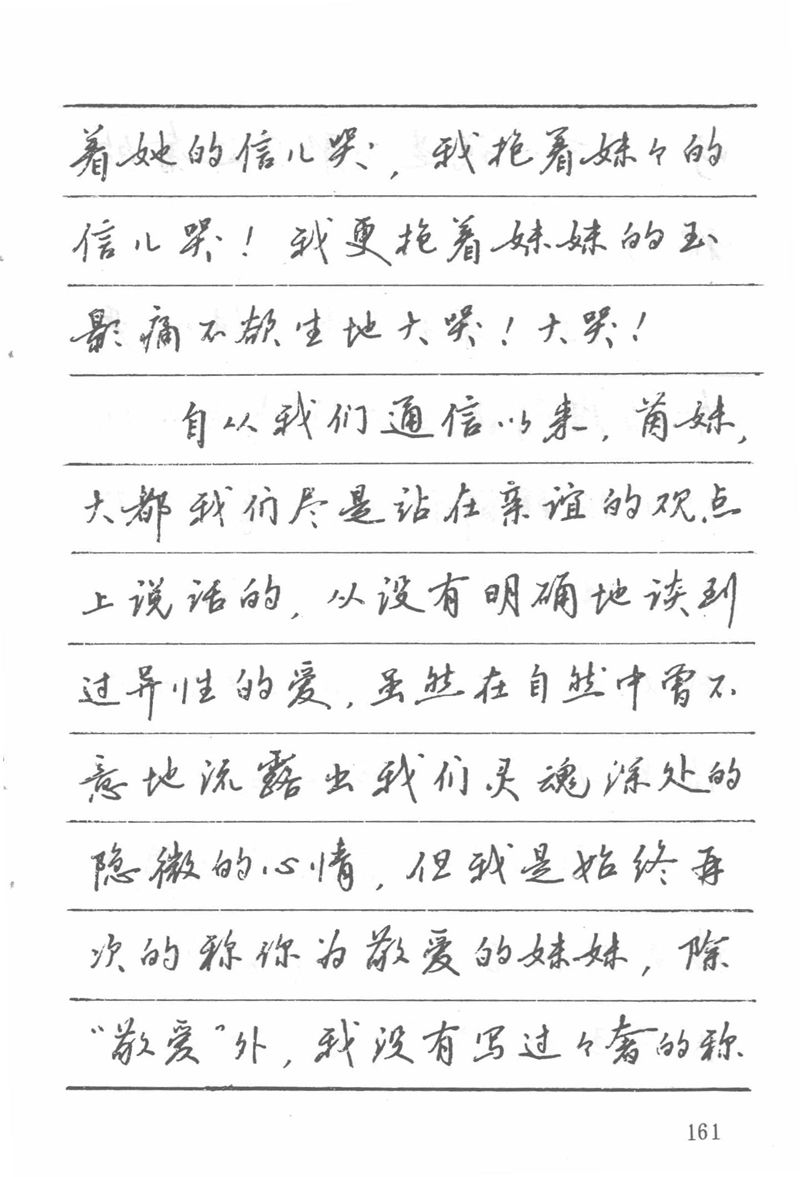 着她的信儿哭，我抱着妹々的
信儿哭！我更抱着妹妹的玉
影痛不欲生地大哭！大哭！
自从我们通信以来，茵妹，
大都我们尽是站在亲谊的观点
上说话的，从没有明确地谈到
过异性的爱，虽然在自然中曾不
意地流露出我们灵魂深处的
隐微的心情，但我是始终再
次的称你为敬爱的妹妹，除
“敬爱”外，我没有写过々奢的称
161